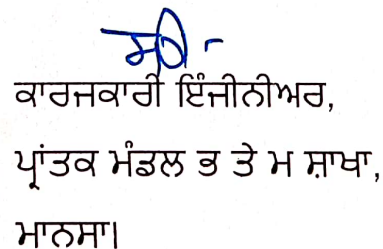 ਸਹੀ-
ਕਾਰਜਕਾਰੀ ਇੰਜੀਨੀਅਰ,
ਪ੍ਰਾਂਤਕ ਮੰਡਲ ਭ ਤੇ ਮ ਸ਼ਾਖਾ,
ਮਾਨਸਾ।